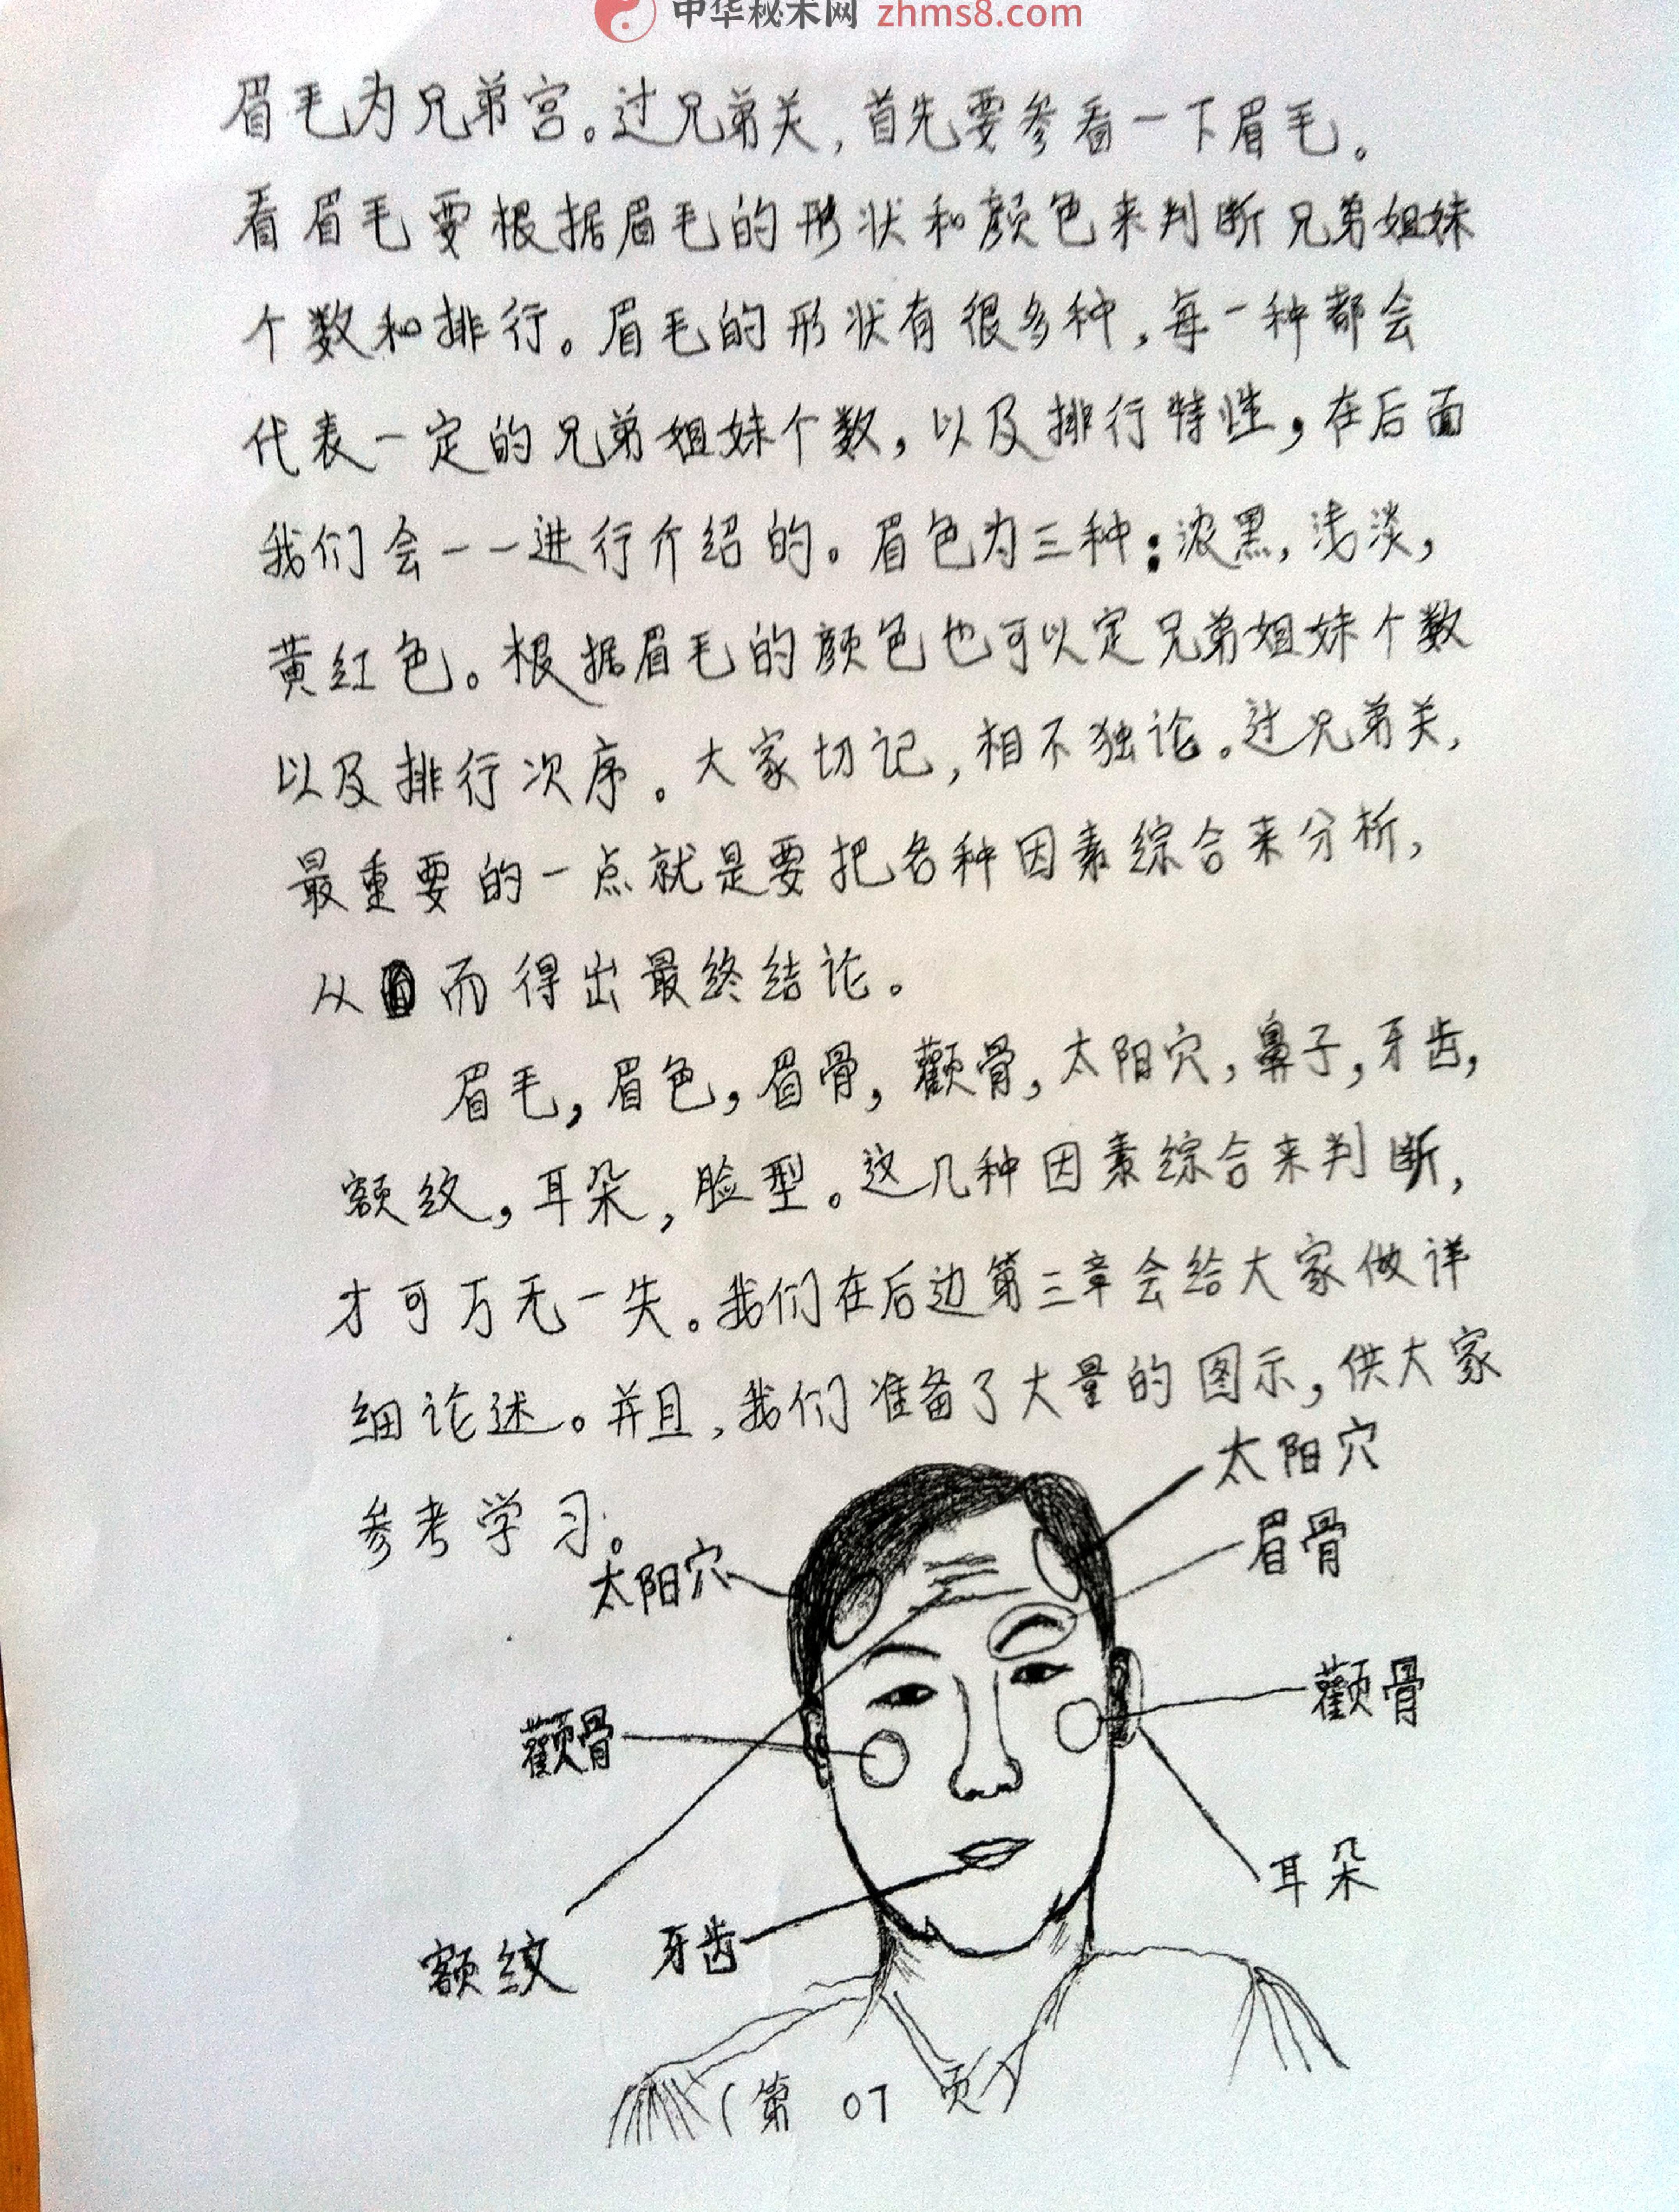 中华秘术网 zhms8.com
眉毛为兄弟宫。过兄弟关，首先要参看一下眉毛。
看眉毛要根据眉毛的形状和颜色来判断兄弟姐妹
个数和排行。眉毛的形状有很多种，每一种都会
代表一定的兄弟姐妹个数，以及排行特性，在后面
我们会一一进行介绍的。眉色为三种：浓黑，浅淡，
黄红色。根据眉毛的颜色也可以定兄弟姐妹个数
以及排行次序。大家切记，相不独论。过兄弟关，
最重要的一点就是要把各种因素综合来分析，
从而得出最终结论。
眉毛，眉色，眉骨，颧骨，太阳穴，鼻子，牙齿，
额纹，耳朵，脸型。这几种因素综合来判断，
才可万无一失。我们在后边第三章会给大家做详
细论述。并且，我们准备了大量的图示，供大家
参考学习。
太阳穴
眉骨
太阳穴
颧骨
颧骨
耳朵
额纹
牙齿
（第 07 页）